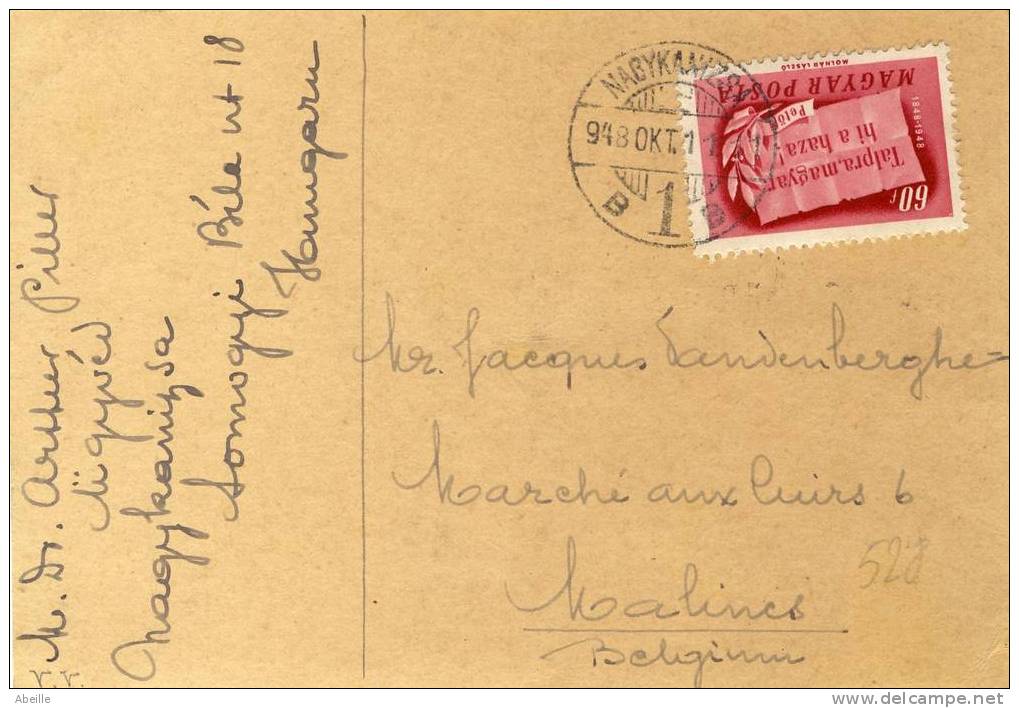 M. Dr. Arthur Piller
Ügyvéd
Nagykanizsa
Somogyi Béla ut 18
Hungaru
NAGYKANIZSA
948 OKT. 1
B 1 B
MOLNÁR LÁSZLÓ
MAGYAR POSTA
1848-1948
Petőf
Talpra, magyar
hi a haza
60 f
Mr. Jacques Vandenberghe=
Marché aux cuirs 6
Malines
Belgium
52g
r.r.
Abeille
www.delcampe.net